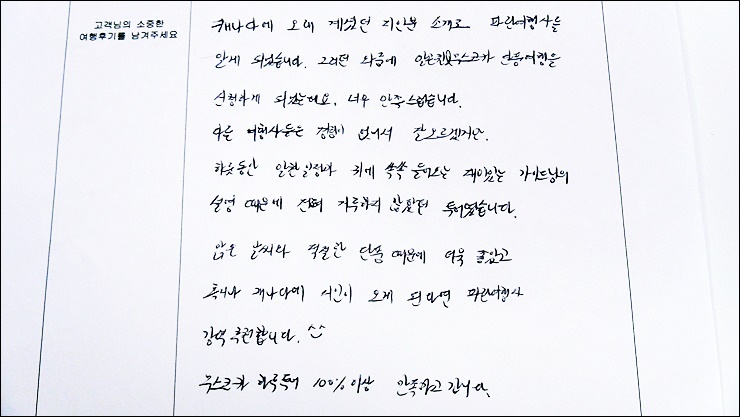 고객님의 소중한
여행후기를 남겨주세요
캐나다에 오래 계셨던 지인분 소개로 파란여행사를
알게 되었습니다. 그러던 와중에 알곤퀸&무스코카 단풍여행을
신청하게 되었는데요, 너무 만족스럽습니다.
다른 여행사들은 경험이 없어서 잘모르겠지만,
하룻동안 알찬일정과 귀에 쏙쏙 들어오는 재미있는 가이드님의
설명 때문에 전혀 지루하지 않았던 투어였습니다.
맑은 날씨와 적절한 단풍 때문에 더욱 좋았고
혹시나 캐나다에 지인이 오게 된다면 파란여행사
강력추천합니다. ^^
무스코카 하루투어 100% 이상 만족하고 갑니다.